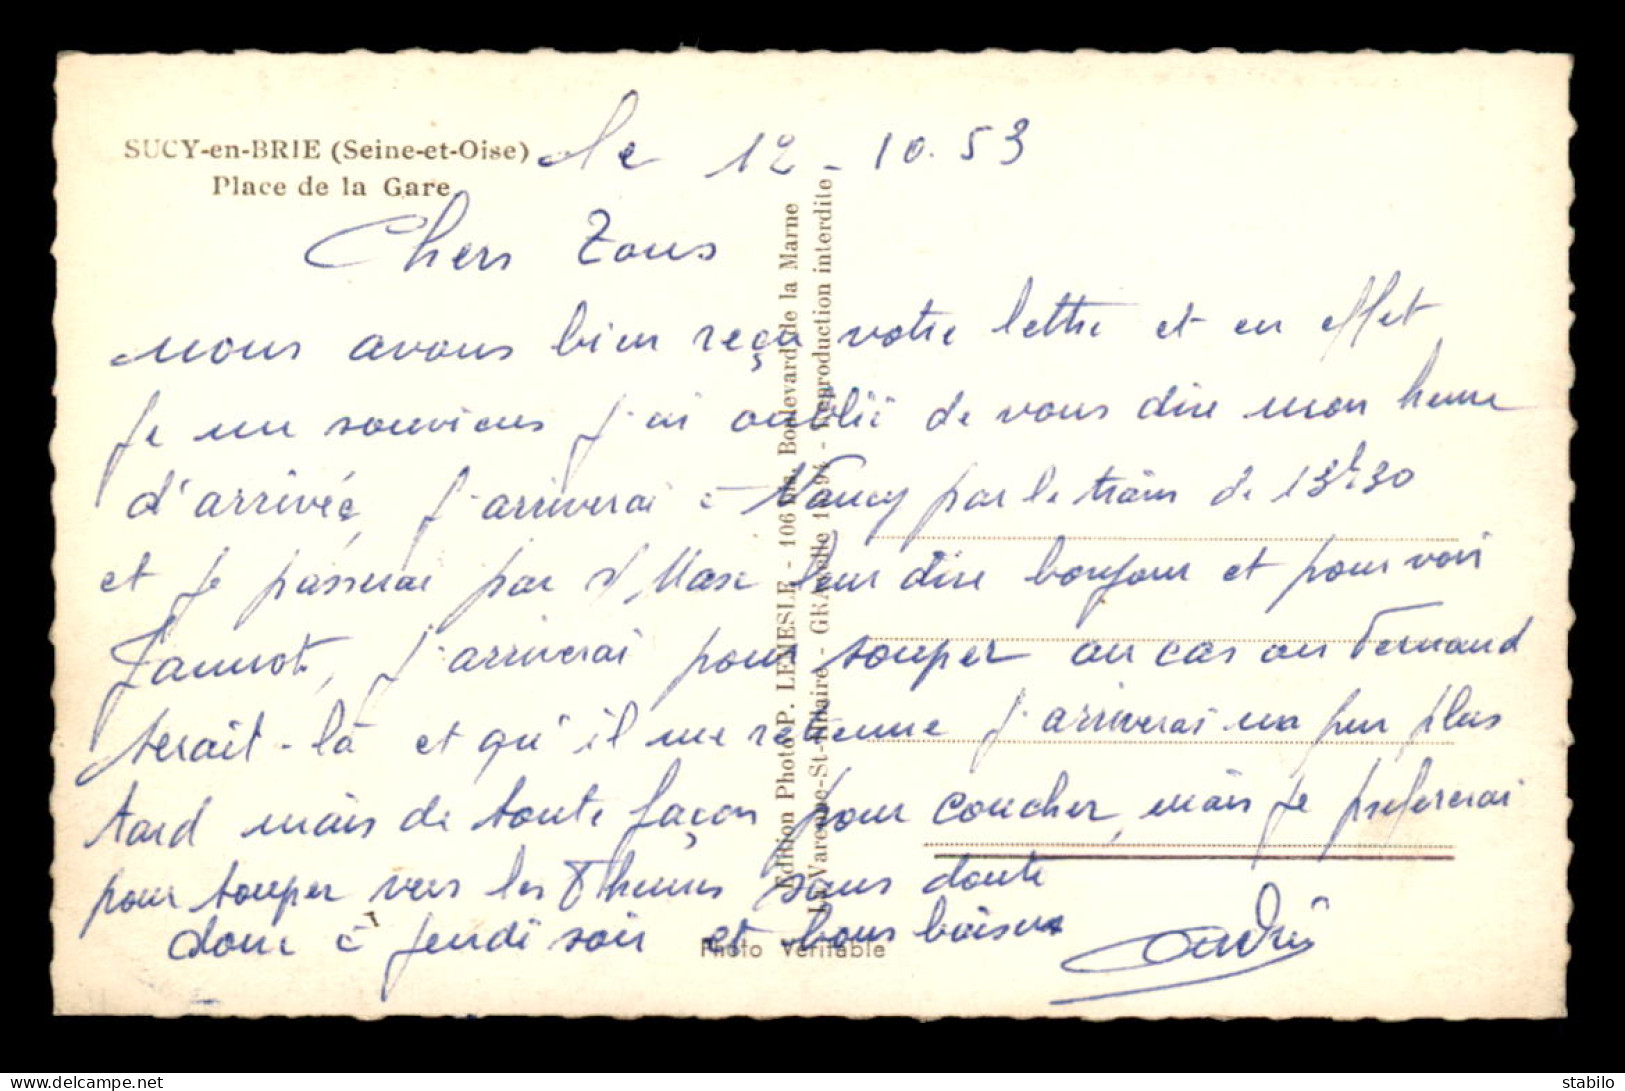 SUCY-en-BRIE (Seine-et-Oise)
Place de la Gare
le 12-10.53
Chers Tous
nous avons bien reçu votre lettre et en effet
je me souviens j'ai oublié de vous dire mon heure
d'arrivée, j'arriverai à Nancy par le train de 13h30
et je passerai par St Max leur dire bonjour et pour voir
Jannot, j'arriverai pour souper au cas ou Fernand
serait-là et qu'il me retienne j'arriverai un peu plus
tard mais de toute façon pour coucher, mais je préfererai
pour souper vers les 8 heures sans doute
donc à jeudi soir et bons baisers
André
Edition Photo P. LEMESLE - 106 bis, Boulevard de la Marne
La Varenne-St-Hilaire - GRAvelle - Reproduction interdite
Photo Véritable
delcampe.net
stabilo